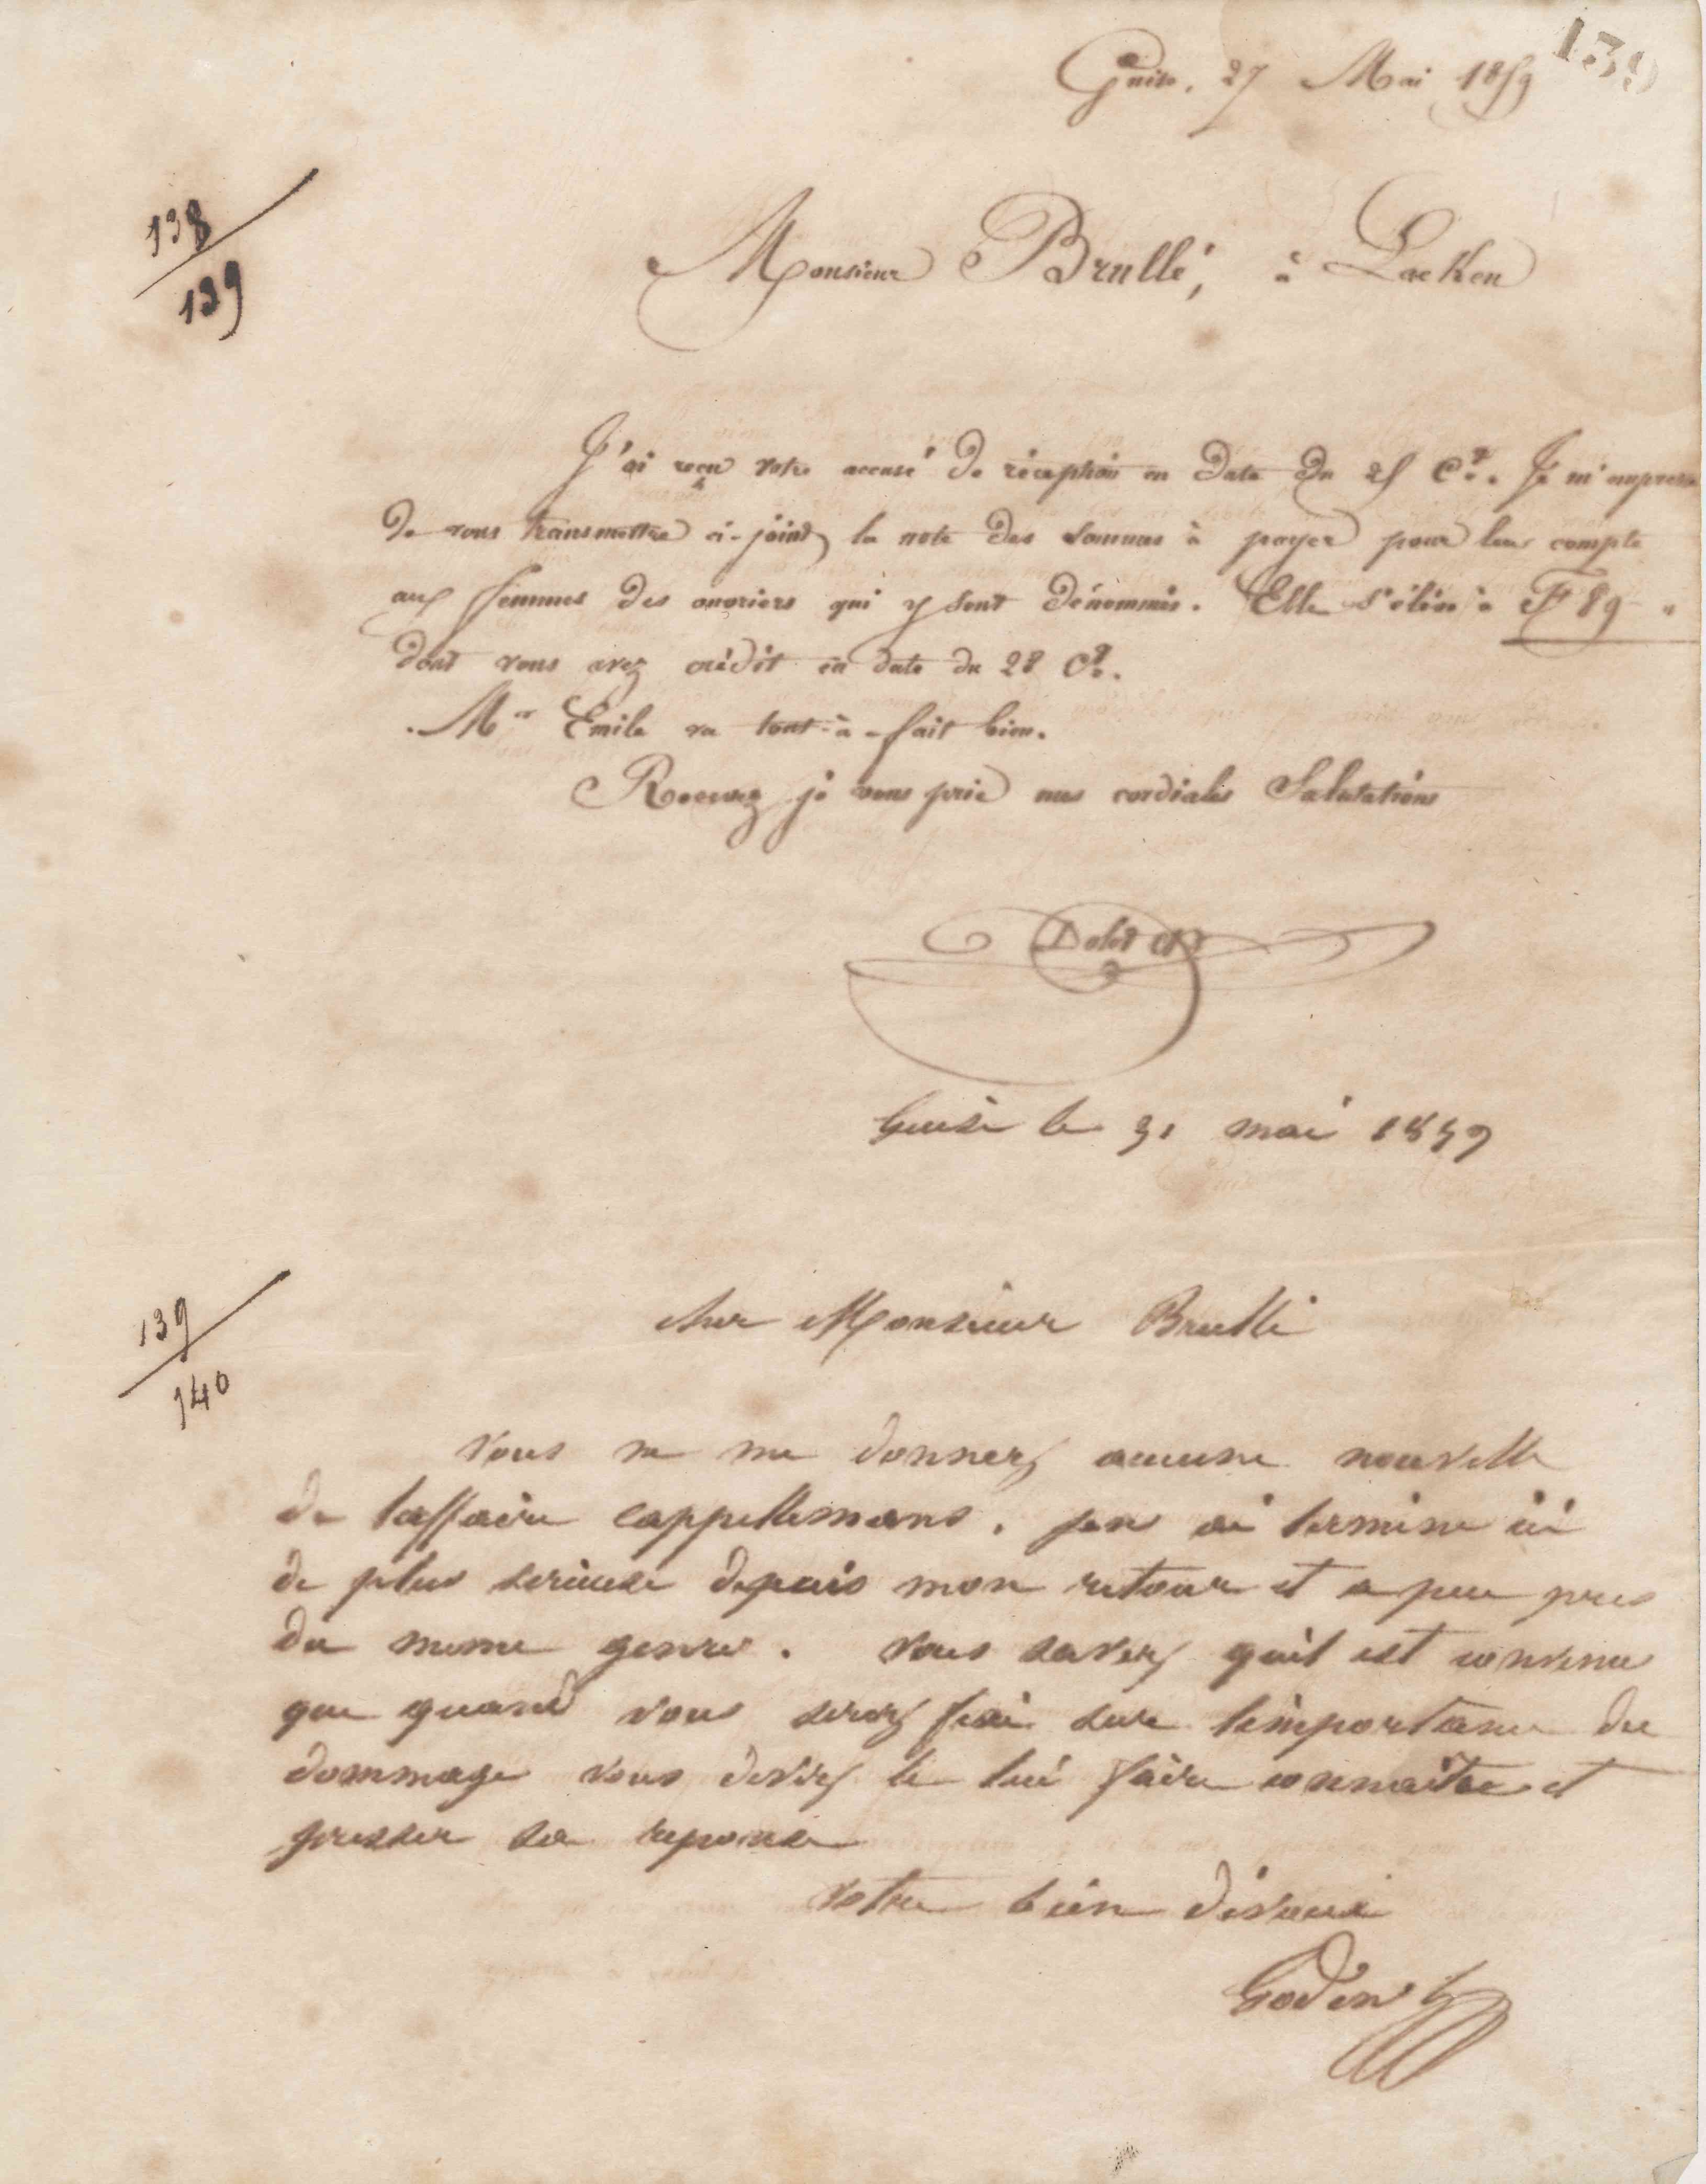 139
Guise, 27 Mai 1859
138
139
Monsieur Brullé, à Laeken
J'ai reçu votre accusé de réception en date du 25 Ct. Je m'empresse
de vous transmettre ci-joint la note des sommes à payer pour leur compte
aux femmes des ouvriers qui y sont dénommés. Elle s'élève à F 89 "
dont vous avez crédit en date du 28 Ct.
Mr Emile va tout-à-fait bien.
Recevez je vous prie mes cordiales Salutations
Guise le 31 mai 1859
139
140
cher Monsieur Brullé
Vous ne me donnez aucune nouvelle
de laffaire cappellemans. jen ai termine ici
de plus serieuse depuis mon retour et a peu pres
du meme genre. Vous savez quil est convenu
que quand vous serez fixé sur limportance du
dommage vous devez le lui faire connaitre et
presser sa reponse
votre bien dévoué
Godin